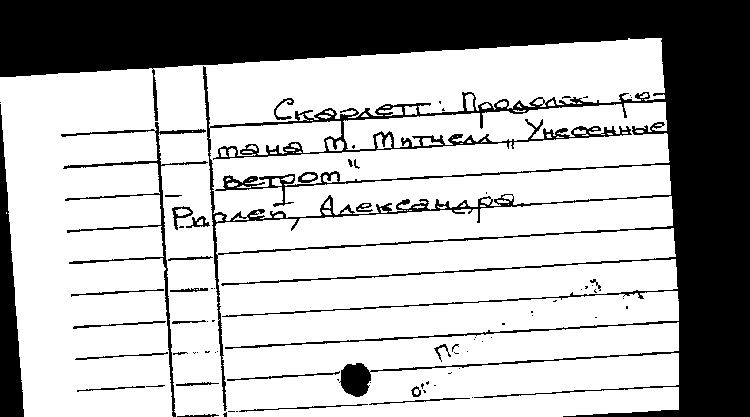 Скарлетт: Продолж. ро-
мана М. Митчелл „Унесенные
ветром".
Риплей, Александра.